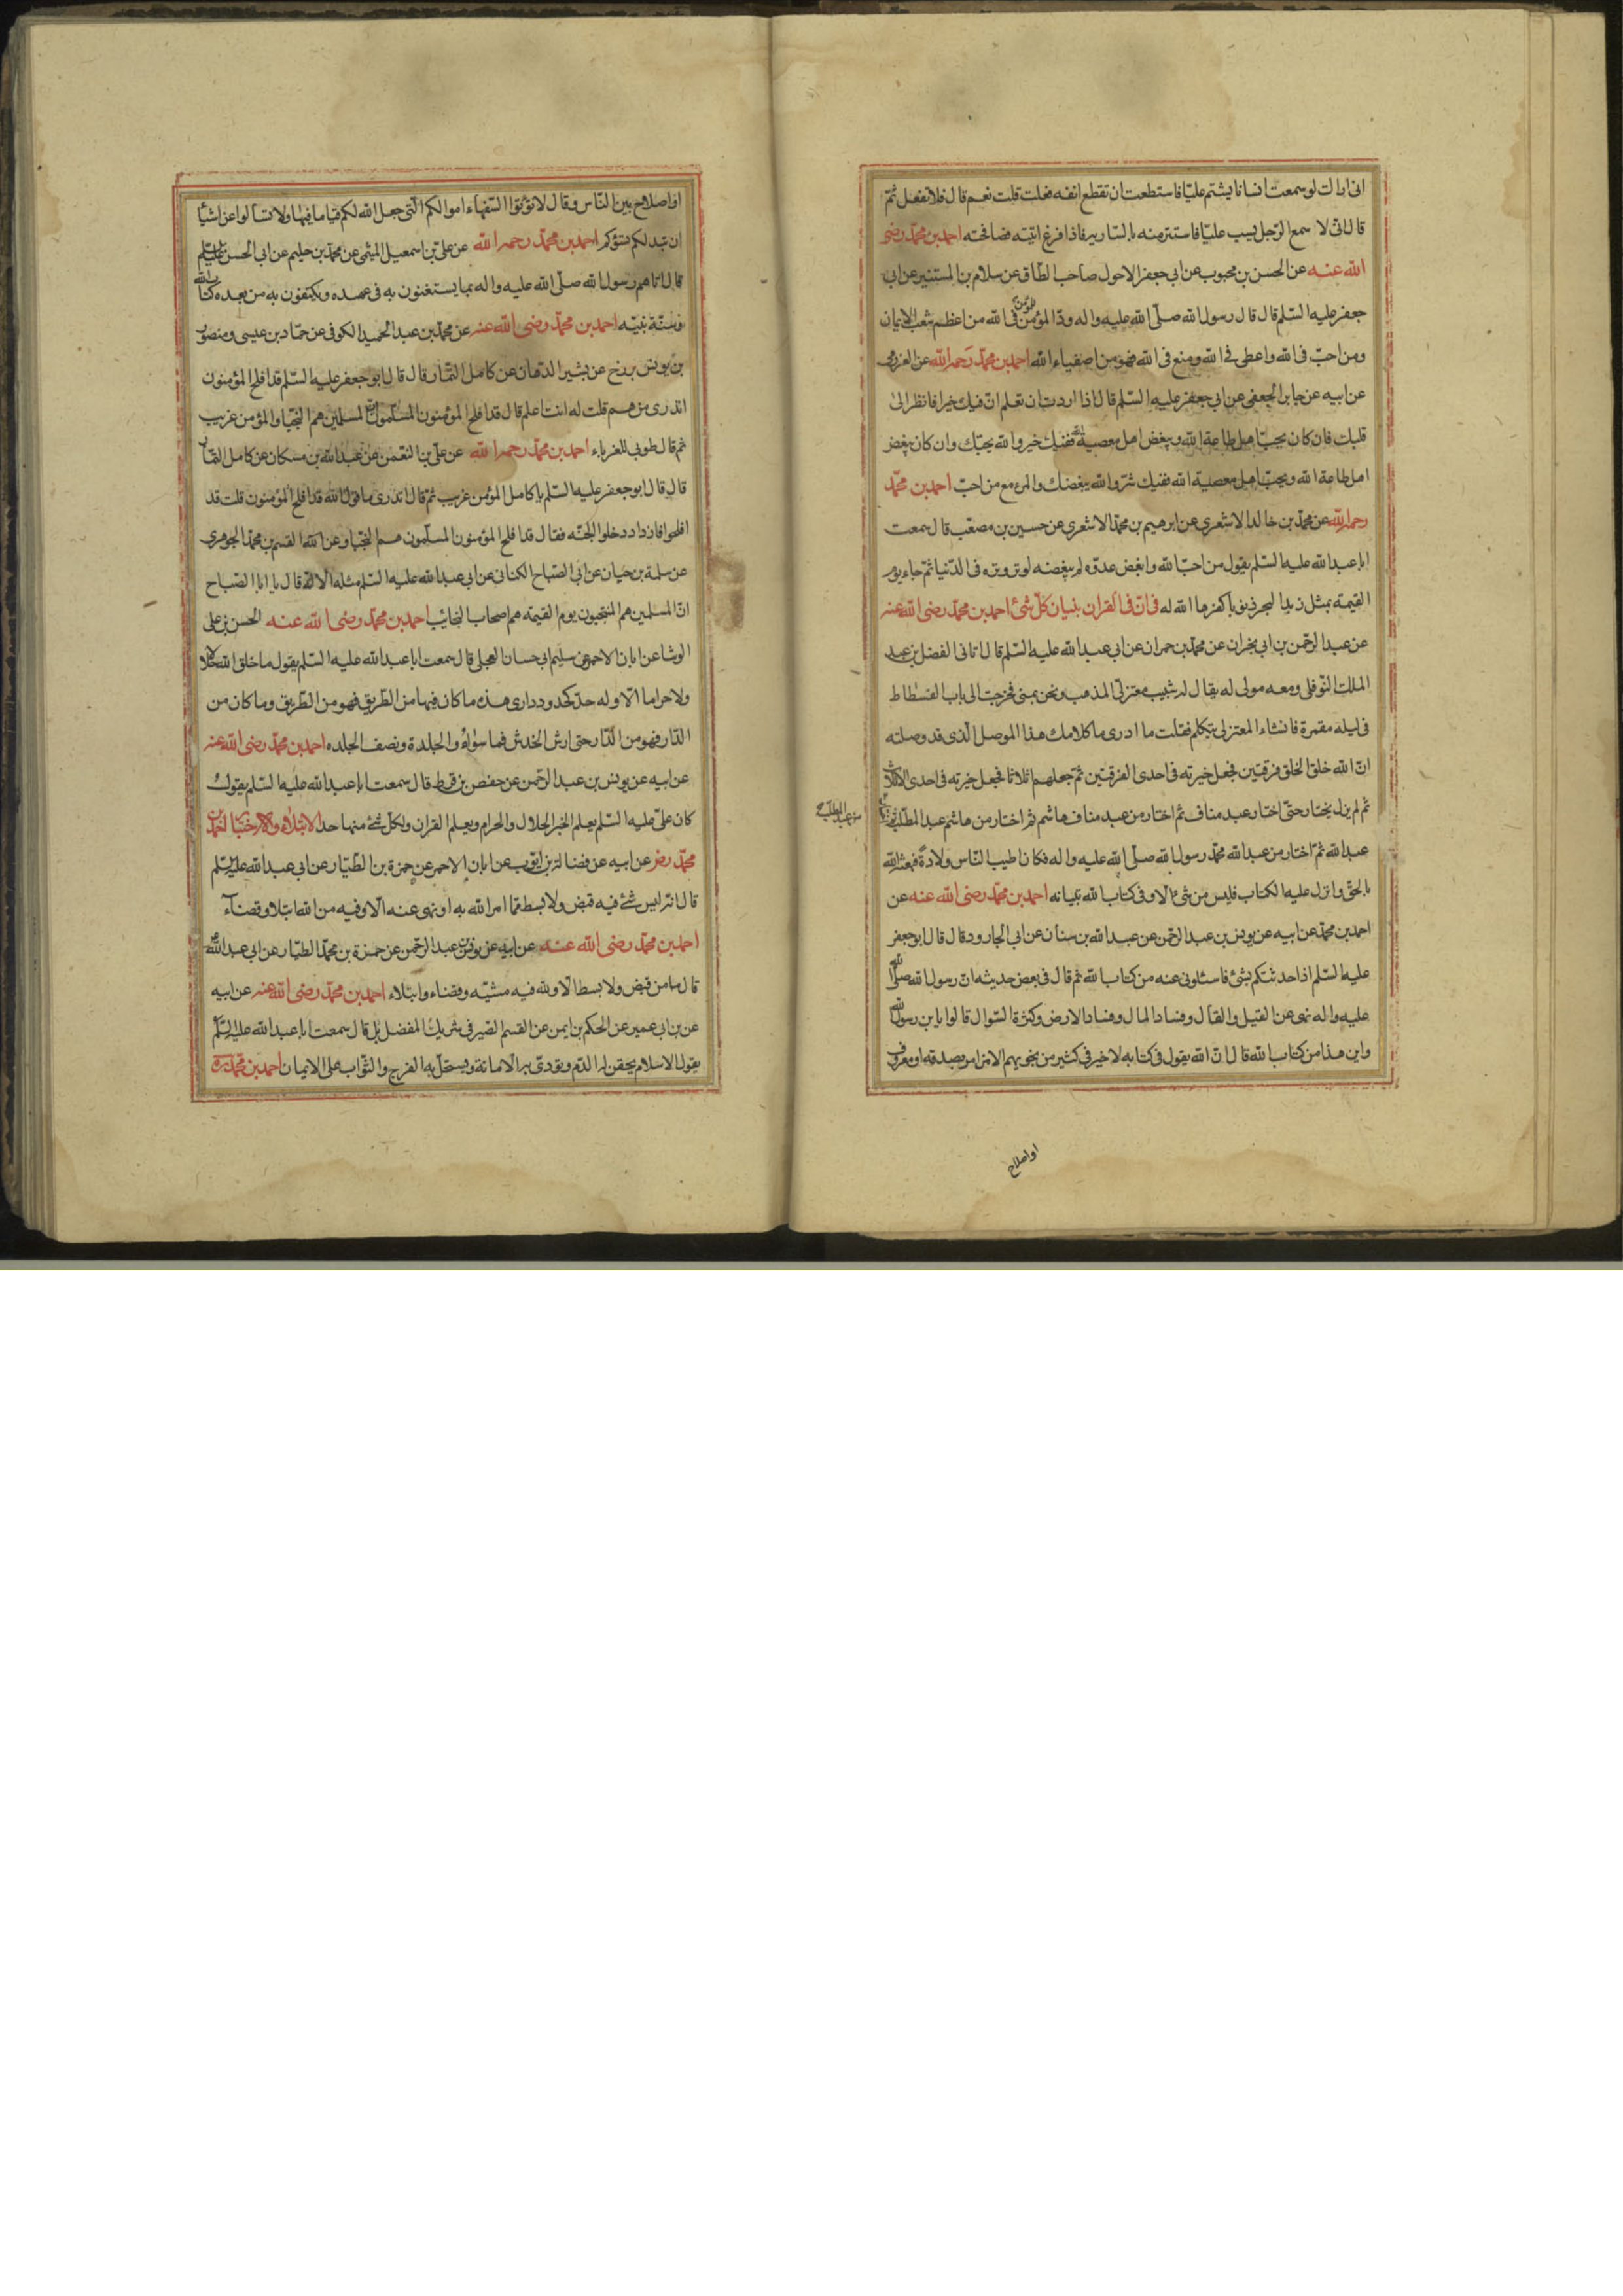 انى اراك لو سمعت انسانا يشتم عليّا فاستطعت ان تقطع انفه فعلت قلت نعم قال فلا تفعل ثمّ
قال انّى لا سمع الرّجل يسب عليّا فاستتر منه بالسّاريه فاذا فرغ اتيته فصافحته احمد بن محمّد رضى
الله عنه عن الحسن بن محبوب عن ابى جعفر الاحول صاحب الطّاق عن سلام بن المستنير عن ابى
جعفر عليه السّلم قال قال رسول الله صلّى الله عليه واله ودّ المؤمن للمؤمن فى الله من اعظم شعب الايمان
ومن احبّ فى الله واعطى فى الله ومنع فى الله فهو من اصفياء الله احمد بن محمّد رحمه الله عن العرزمى
عن ابيه عن جابر الجعفى عن ابى جعفر عليه السّلم قال اذا اردت ان تعلم انّ فيك خيرا فانظر الى
قلبك فان كان يحبّ اهل طاعة الله ويبغض اهل معصية الله ففيك خير والله يحبّك وان كان يبغض
اهل طاعة الله ويحبّ اهل معصية الله ففيك شرّ والله يبغضك والمرء مع من احبّ احمد بن محمّد
رحمه الله عن محمّد بن خالد الاشعرى عن ابرهيم بن محمّد الاشعرى عن حسين بن مصعب قال سمعت
ابا عبد الله عليه السّلم يقول من احبّ الله وابغض عدوّه لم يبغضه لوتر وتره فى الدّنيا ثمّ جاء يوم
القيمة بمثل زبد البحر ذنوبا كفرها الله له فى انّ فى القران بتبيان كلّ شئ احمد بن محمّد رضى الله عنه
عن عبد الرّحمن بن ابى نجران عن محمّد بن حمران عن ابى عبد الله عليه السّلم قال اتانى الفضل بن عبد
الملك النّوفلى ومعه مولى له يقال له شبيب معتزلىّ المذهب ونحن بمنى فخرجت الى باب الفسطاط
فى ليلة مقمرة فانشاء المعتزلى يتكلم فقلت ما ادرى ما كلامك هذا الموصل الّذى قد وصلته
انّ الله خلق الخلق فرقتين فجعل خيرته فى احدى الفرقتين ثمّ جعلهم اثلاثا فجعل خيرته فى احدى الاثلاث
ثمّ لم يزل يختار حتّى اختار عبد مناف ثمّ اختار من عبد مناف هاشم ثمّ اختار من هاشم عبد المطّلب ثمّ
من عبد المطّلب
عبد الله ثمّ اختار من عبد الله محمّد رسول الله صلّى الله عليه واله فكان اطيب النّاس ولادة فبعثه الله
بالحقّ وانزل عليه الكتاب فليس من شئ الّا وفى كتاب الله تبيانه احمد بن محمّد رضى الله عنه عن
احمد بن محمّد عن ابيه عن يونس بن عبد الرّحمن عن عبد الله بن سنان عن ابى الجارود قال قال ابو جعفر
عليه السّلم اذا حدثتكم بشئ فاسئلونى عنه من كتاب الله ثمّ قال فى بعض حديثه انّ رسول الله صلّى الله
عليه واله نهى عن القيل والقال وفساد المال وفساد الارض وكثرة السّوال قالوا يابن رسول الله
واين هذا من كتاب الله قال انّ الله يقول فى كتابه لا خير فى كثير من نجويهم الا من امر بصدقة او معروف
او اصلاح
او اصلاح بين النّاس وقال لا تؤتوا السّفهاء اموالكم الّتى جعل الله لكم قياما فيها ولا تسالوا عن اشياء
ان تبد لكم تسؤكم احمد بن محمّد رحمه الله عن علىّ بن اسمعيل الميثمى عن محمّد بن حكيم عن ابى الحسن عليه السّلم
قال اتاهم رسول الله صلّى الله عليه واله بما يستغنون به فى عهده ويكتفون به من بعده كتاب الله
وسنّة نبيّه احمد بن محمّد رضى الله عنه عن محمّد بن عبد الحميد الكوفى عن حمّاد بن عيسى ومنصور
بن يونس بزرج عن بشير الدّهان عن كامل التّمّار قال قال ابو جعفر عليه السّلم قد افلح المؤمنون
اتدرى من هم قلت له انت اعلم قال قد افلح المؤمنون المسلّمون انّ المسلمين هم النّجبا والمؤمن غريب
ثمّ قال طوبى للغرباء احمد بن محمّد رحمه الله عن علىّ بن النّعمن عن عبد الله بن مسكان عن كامل التّمّار
قال قال ابو جعفر عليه السّلم يا كامل المؤمن غريب ثمّ قال اتدرى ما قول الله قد افلح المؤمنون قلت قد
افلحوا فازوا ودخلوا الجنّه فقال قد افلح المؤمنون المسلّمون هم النّجبا وعن القسم بن محمّد الجوهرى
عن سلمة بن حيان عن ابى الصّباح الكنانى عن ابى عبد الله عليه السّلم مثله الا انّه قال يا ابا الصّباح
انّ المسلمين هم المنتجبون يوم القيمة هم اصحاب النجائب احمد بن محمّد رضى الله عنه الحسن بن على
الوشا عن ابان الاحمر عن سليم ابى حسان العجلى قال سمعت ابا عبد الله عليه السّلم يقول ما خلق الله حلالا
ولا حراما الّا وله حدّ كحدود دارى هذه ما كان فيها من الطّريق فهو من الطّريق وما كان من
الدّار فهو من الدّار حتى ارش الخدش فما سواه والجلدة ونصف الجلده احمد بن محمّد رضى الله عنه
عن ابيه عن يونس بن عبد الرّحمن عن حفص بن قرط قال سمعت ابا عبد الله عليه السّلم يقول
كان علىّ عليه السّلم يعلم الخبر الحلال والحرام ويعلم القران ولكلّ شئ منهما حد الابتلاء والاختبار احمد بن
محمّد رض عن ابيه عن فضالة بن ايّوب عن ابان الاحمر عن حمزة بن الطّيّار عن ابى عبد الله عليه السّلم
قال انّه ليس شئ فيه قبض ولا بسط ممّا امر الله به او نهى عنه الّا وفيه من الله ابتلا وقضاء
احمد بن محمّد رضى الله عنه عن ابيه عن يونس بن عبد الرّحمن عن حمزة بن محمّد الطيّار عن ابى عبد الله
قال ما من قبض ولا بسط الّا ولله فيه مشيّه وقضاء وابتلاء احمد بن محمّد رضى الله عنه عن ابيه
عن بن ابى عمير عن الحكم بن ايمن عن القسم الصّيرفى شريك المفضل قال سمعت ابا عبد الله عليه السّلم
يقول الاسلام يحقن به الدّم ويودّى به الامانة ويستحلّ به الفرج والثّواب على الايمان احمد بن محمّد